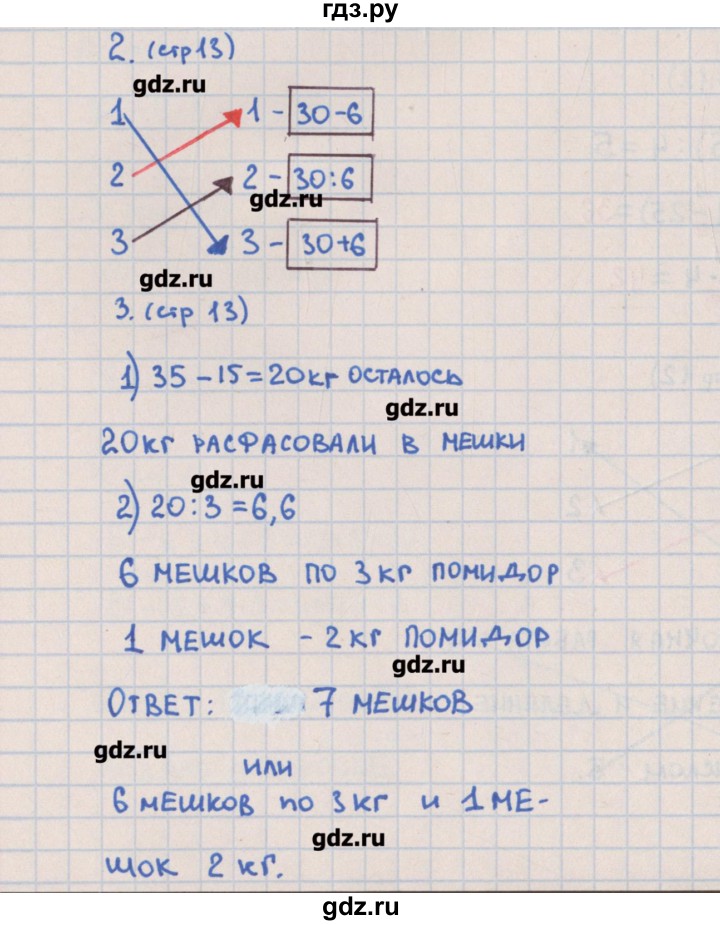 гдз.ру
2. (стр 13)
gdz.ru
1 1 - 30-6
2 2 - 30:6
gdz.ru
3 3 - 30+6
gdz.ru
3. (стр 13)
1) 35 - 15 = 20 кг осталось
gdz.ru
20 кг расфасовали в мешки
gdz.ru
2) 20 : 3 = 6,6
6 мешков по 3 кг помидор
1 мешок - 2 кг помидор
gdz.ru
Ответ: 7 мешков
gdz.ru
или
6 мешков по 3 кг и 1 ме-
gdz.ru
шок 2 кг.
gdz.ru